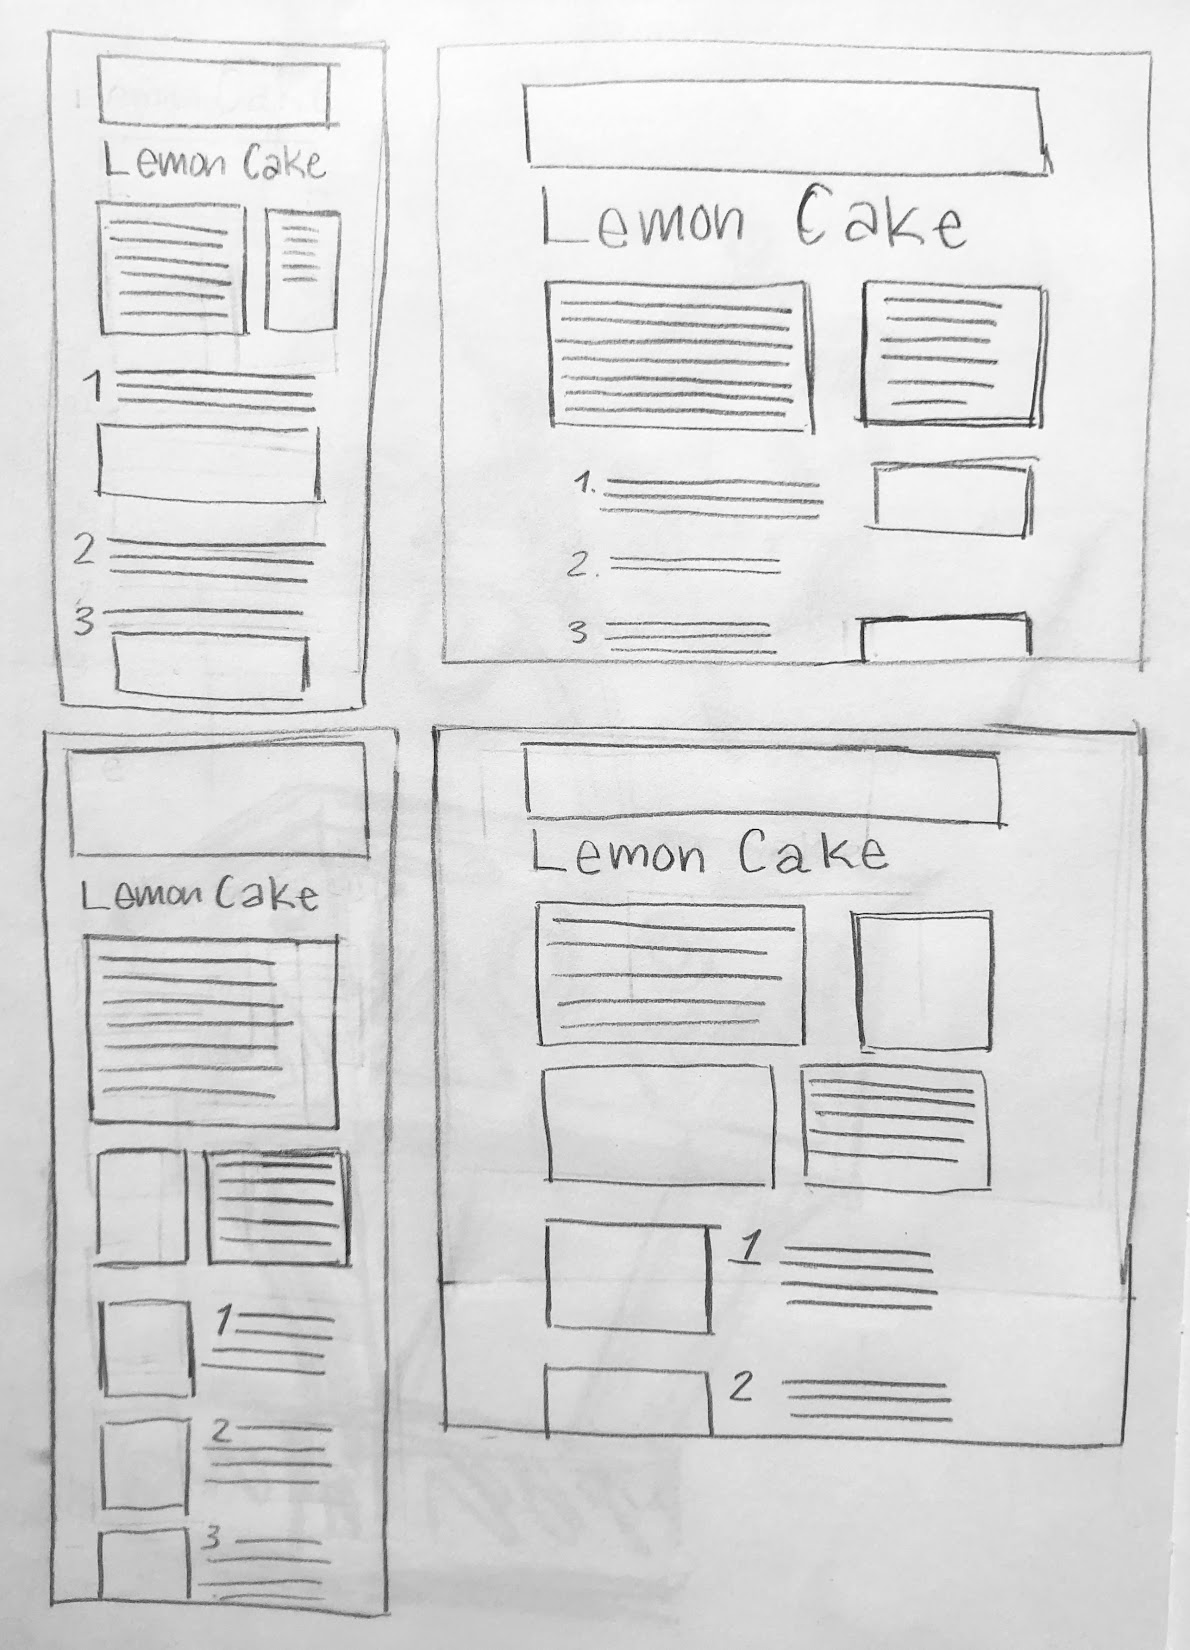 Lemon Cake
1
2
3
Lemon Cake
1.
2.
3
Lemon Cake
1
2
3
Lemon Cake
1
2